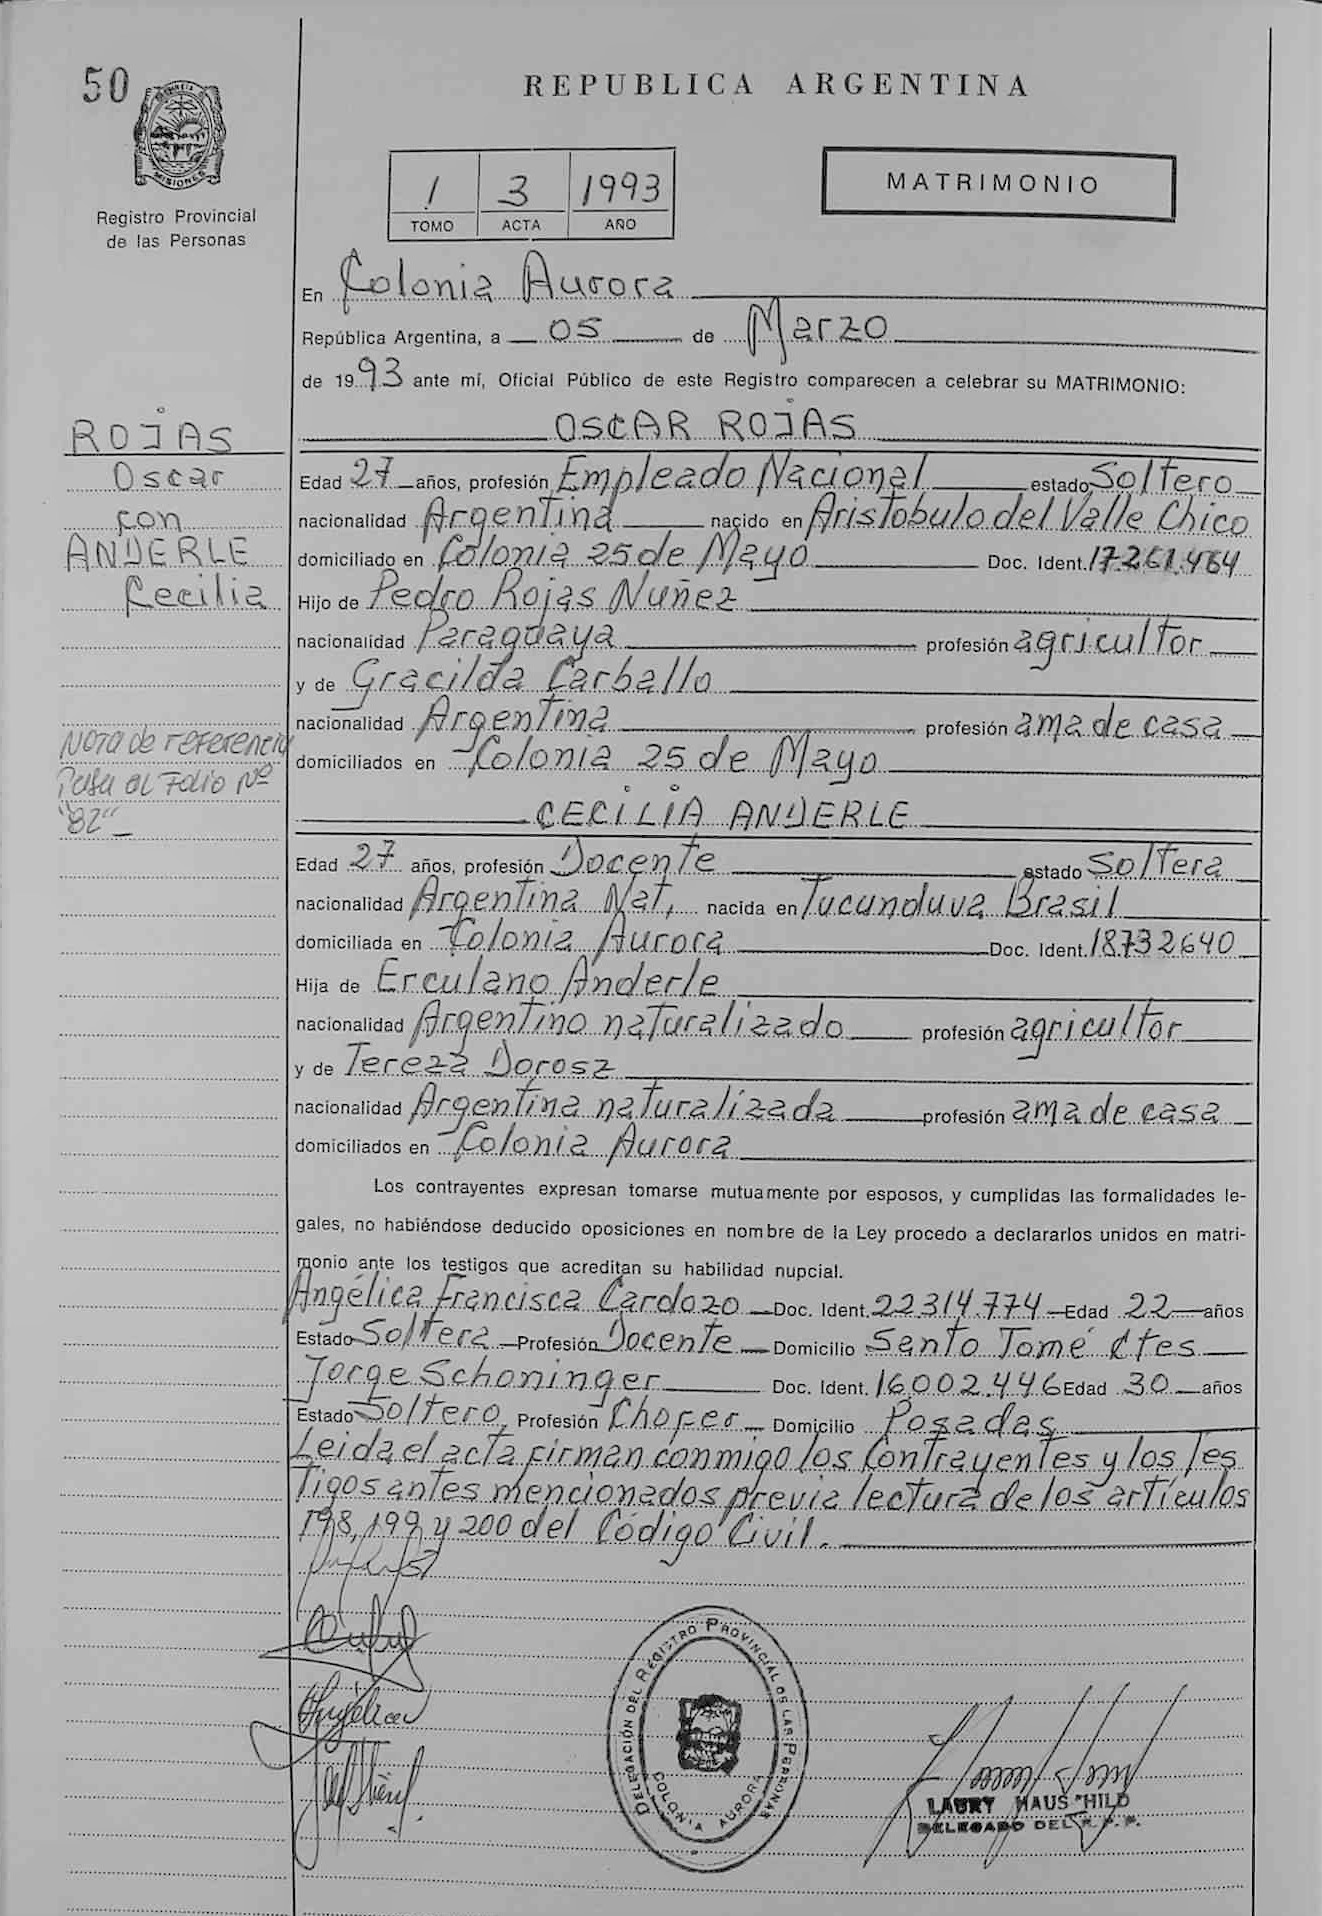 50
MISIONES
Registro Provincial
de las Personas
REPUBLICA ARGENTINA
1 3 1993
TOMO ACTA AÑO
MATRIMONIO
En Colonia Aurora
República Argentina, a 05 de Marzo
de 1993 ante mí, Oficial Público de este Registro comparecen a celebrar su MATRIMONIO:
ROJAS
Oscar
con
ANDERLE
Cecilia
Nota de referencia
Pasa al Folio Nº
"82"
OSCAR ROJAS
Edad 27 años, profesión Empleado Nacional estado Soltero
nacionalidad Argentina nacido en Aristobulo del Valle Chico
domiciliado en Colonia 25 de Mayo Doc. Ident. 17.261.464
Hijo de Pedro Rojas Nuñez
nacionalidad Paraguaya profesión agricultor
y de Gracilda Carballo
nacionalidad Argentina profesión ama de casa
domiciliados en Colonia 25 de Mayo
CECILIA ANDERLE
Edad 27 años, profesión Docente estado Soltera
nacionalidad Argentina Nat, nacida en Tucunduva Brasil
domiciliada en Colonia Aurora Doc. Ident. 18732640
Hija de Erculano Anderle
nacionalidad Argentino naturalizado profesión agricultor
y de Tereza Dorosz
nacionalidad Argentina naturalizada profesión ama de casa
domiciliados en Colonia Aurora
Los contrayentes expresan tomarse mutuamente por esposos, y cumplidas las formalidades le-
gales, no habiéndose deducido oposiciones en nombre de la Ley procedo a declararlos unidos en matri-
monio ante los testigos que acreditan su habilidad nupcial.
Angélica Francisca Cardozo Doc. Ident. 22314.774 Edad 22 años
Estado Soltera Profesión Docente Domicilio Santo Tomé Ctes
Jorge Schoninger Doc. Ident. 16002.446 Edad 30 años
Estado Soltero, Profesión Chofer Domicilio Posadas
Leida el acta firman conmigo los Contrayentes y los Tes
Tigos antes mencionados previa lectura de los artículos
198, 199 y 200 del Código Civil.
Angélica
DELEGACIÓN DEL REGISTRO PROVINCIAL DE LAS PERSONAS
COLONIA AURORA
DELEGADO DEL R.P.P.